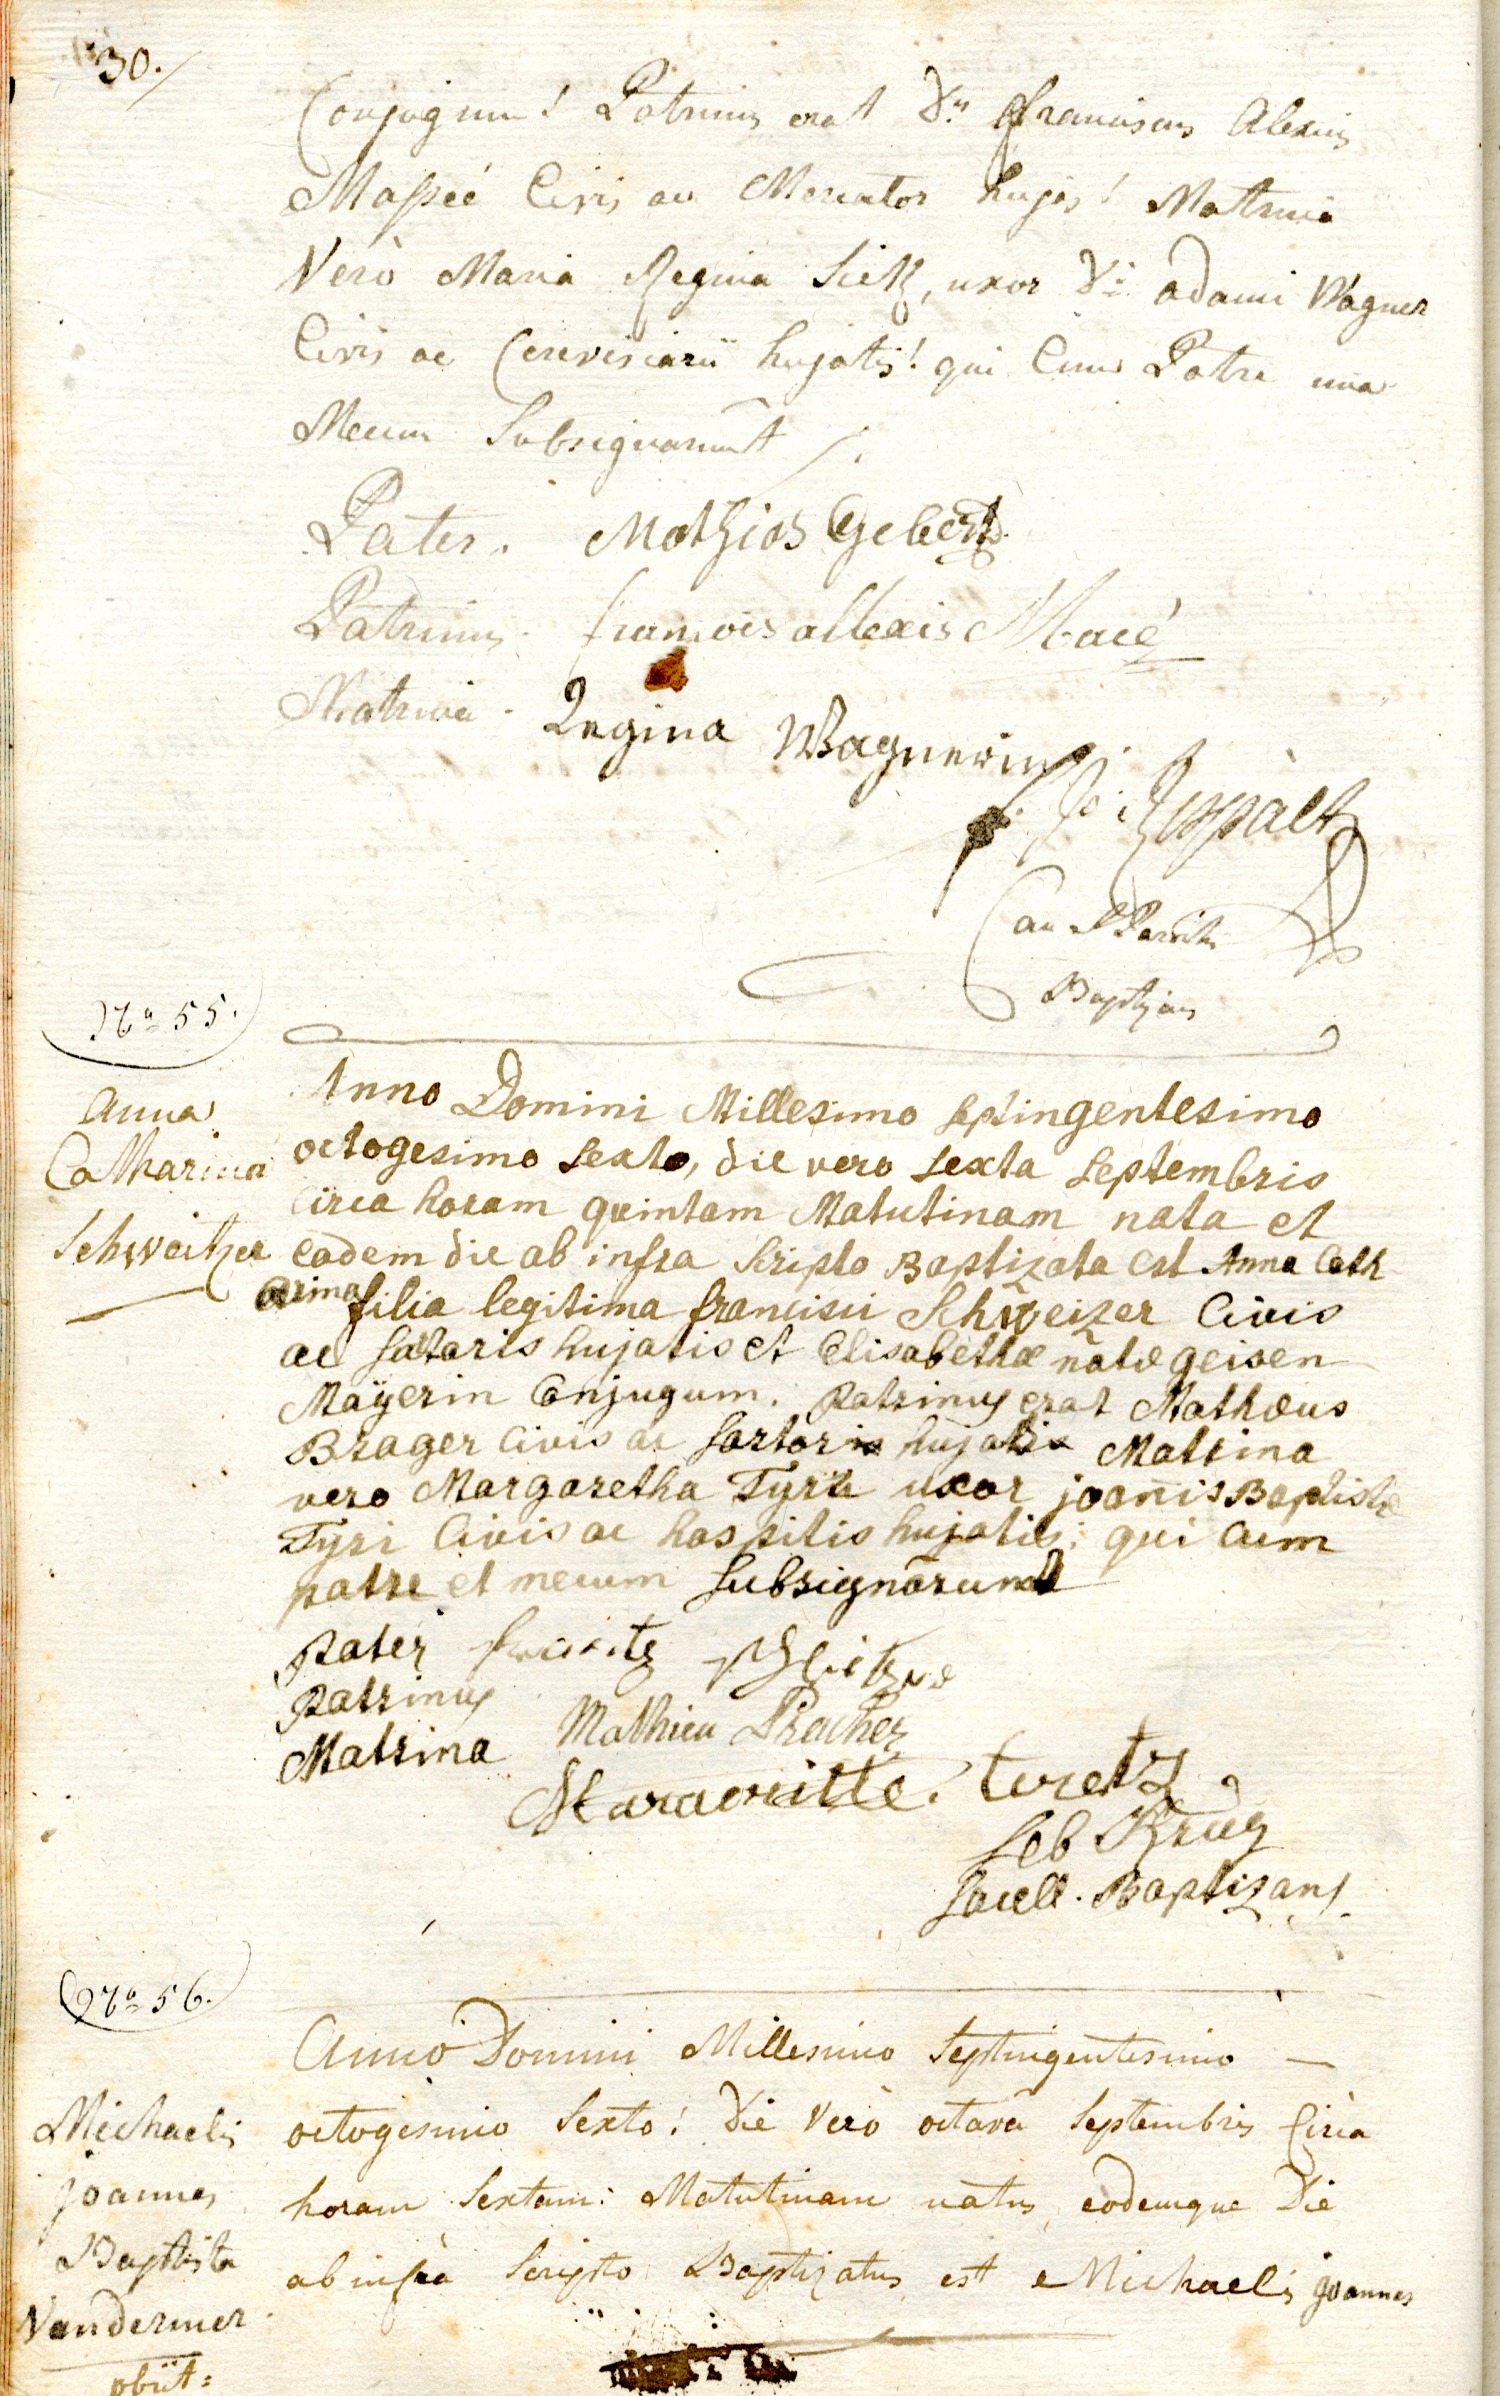 30.
Conjugum! Patrinus erat Dns franciscus Alexius
Massé Civis ac Mercator hujas! Matrina
Verò Maria Regina Sietz, uxor Di adami Wagner
Civis ac Cerevisiarii hujatis! qui Cum Patre una
Mecum Subsignarunt
Pater. Mathias Gebert
Patrinus. francois allexis Macé
Matrina. Regina Wagnerin
Can
Baptizans
No 55.
Anna
Catharina
Schweitzer
Anno Domini Millesimo Septingentesimo
octogesimo sexto, die vero sexta Septembris
Circa horam quintam Matutinam nata et
eadem die ab infra Scripto Baptizata est Anna Cath
arina filia legitima francisci Schweizer Civis
ac sartoris hujatis et Elisabethæ natæ geisen
Mäÿerin Conjugum. Patrinus erat Mathæus
Brager Civis ac sartor hujatis Matrina
vero Margaretha Tyri uxor joanis Baptistæ
Tyri Civis ac hospitis hujatis; qui cum
patre et mecum subsignarunt
Pater
Patrinus Mathieu Pracher
Matrina Margueritte. teretz
Seb Krug
Sacell. Baptizans.
No 56.
Michaelis
joannes
Baptista
Vandermer
obiit =
Anno Domini Millesimo Septingentesimo —
octogesimo Sexto! Die Verò octava Septembris Circa
horam Sextam: Matutinam natus, eodemque Die
ab infrà Scripto Baptizatus est Michaelis joannes